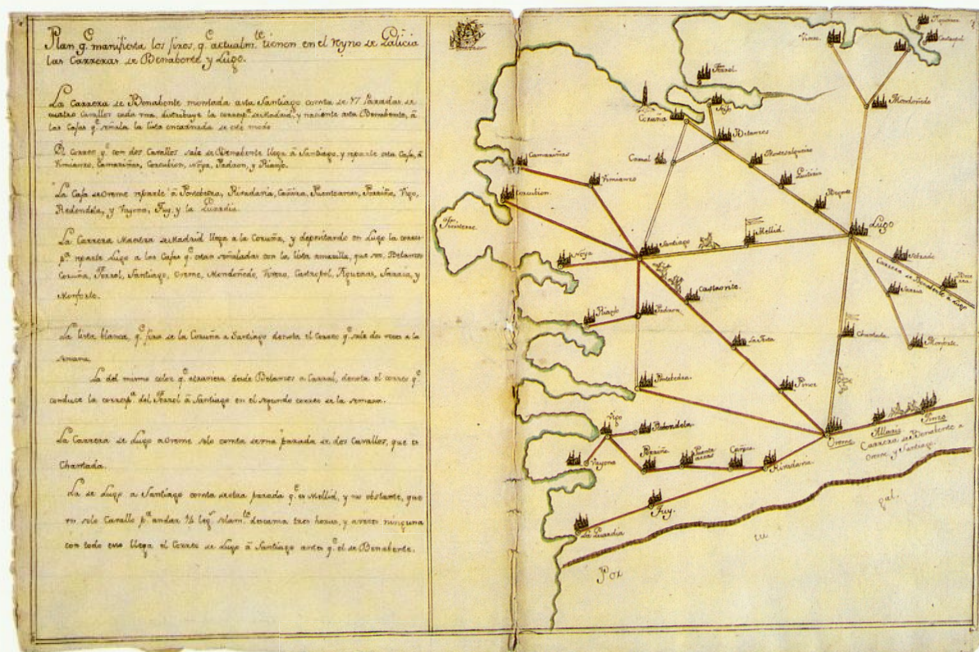 Plan q.e manifiesta los giros, q.e actualm.te tienen en el Reyno de Galicia
las Carreras de Benabente y Lugo.
La Carrera de Benabente montada asta Santiago consta de 17 Paradas de
quatro Cavallos cada una, distribuye la corresp.a de Madrid, y naciente asta Benabente, â
las Cajas q.e señala la lista encarnada de este modo
El Correo q.e con dos Cavallos sale de Benabente llega â Santiago, y reparte esta Caja, â
Vimianzo, Camariñas, Corcubion, Noya, Padron, y Rianjo.
La Caja de Orense reparte â Pontebedra, Rivadavia, Cañiza, Puenteareas, Porriño, Vigo,
Redondela, y Vayona, Tuy, y la Guardia.
La Carrera Maestra de Madrid llega a la Coruña, y depositando en Lugo la corres-
p.a reparte Lugo a las Cajas q.e estan señaladas con la lista amarilla, que son, Betanzos
Coruña, Ferrol, Santiago, Orense, Mondoñedo, Vivero, Castropol, Figueras, Sarria, y
Monforte.
La lista blanca, q.e gira de la Coruña a Santiago denota el Correo q.e sale dos veces a la
semana.
La del mismo color q.e atraviesa desde Betanzos a Carral, denota el correo q.e
conduce la corresp.a del Ferrol â Santiago en el segundo correo de la semana.
La Carrera de Lugo a Orense solo consta de una parada de dos Cavallos, que es
Chantada.
La de Lugo a Santiago consta de otra parada q.e es Mellid, y no obstante, que
un solo Cavallo p.a andar leg.s solam.te descansa tres horas, y a veces ninguna
con todo eso llega el Correo de Lugo â Santiago antes q.e el de Benabente.
Vivero
Figueras
Castropol
Ferrol
Mondoñedo
Coruña
Betanzos
Carral
Camariñas
Vimianzo
Corcubion
Lugo
Santiago
Mellid
Noya
Carrera de Benabente a Lugo
Sarria
Castrovite
Rianjo
Padron
Chantada
Monforte
Pontebedra
Vigo
Redondela
Orense
Allariz
Carrera de Benabente a
Orense y Santiago
Vayona
Porriño
Puente
areas
Cañiza
Rivadavia
Tuy
La Guardia
Por tu gal